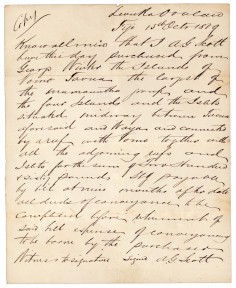 Copy
Levuka Ovalau
Fiji 15th Oct 1879
Know all men that I A G Scott
have this day purchased from
George the Island of
the largest of
the group and
the four Islands and the
situated midway between
aforesaid and Waya and connected
by a reef with same together with
all the adjoining and
for the sum of Two Hundred
and pounds Stg payable
by bill at nine months of
all deeds of conveyance to be
completed upon of
said bill expenses of conveyancing
to be borne by the purchaser
Witness to signature Signed A G Scott